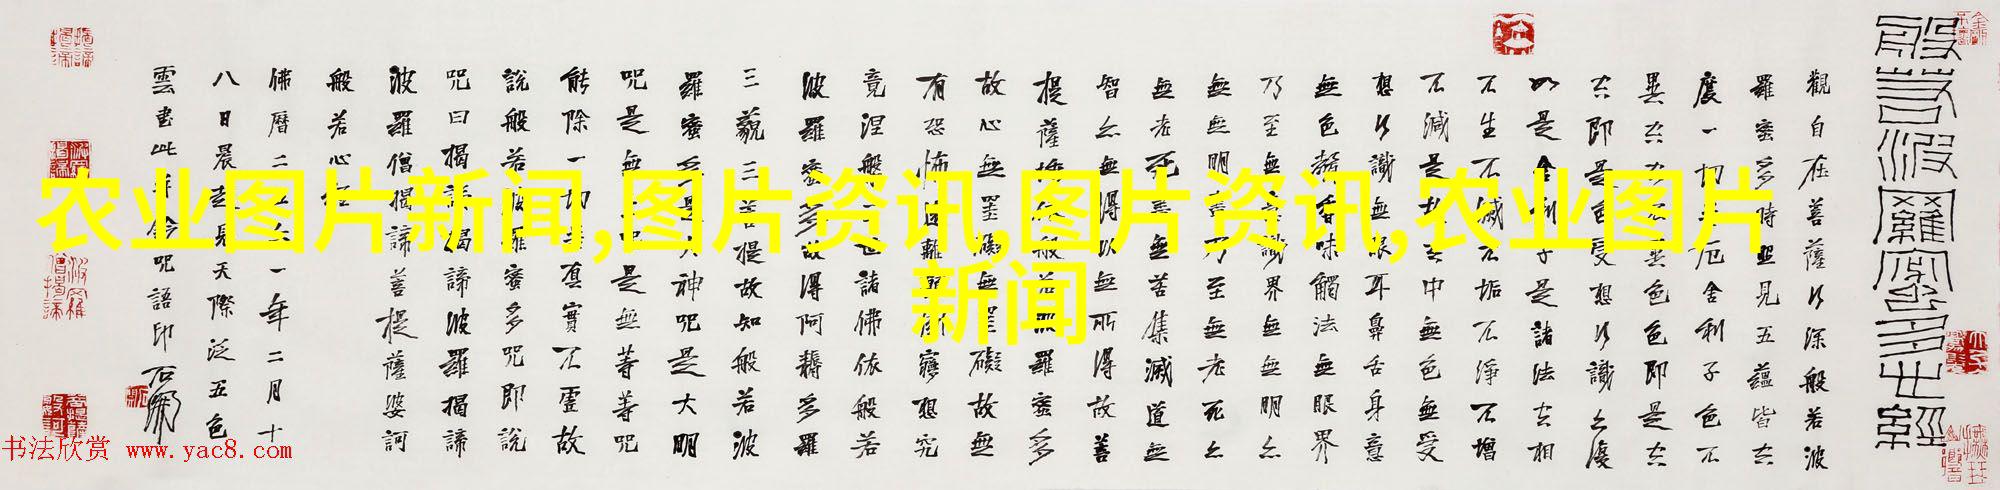 農业图片新闻,图片资讯,图片资讯,农业图片
新闻
般若波羅蜜多心經
觀自在菩薩行深般若波
羅蜜多時照見五蘊皆空
度一切苦厄舍利子色不
異空空不異色色即是空
空即是色受想行識亦復
如是舍利子是諸法空相
不生不滅不垢不淨不增
不減是故空中無色無受
想行識無眼耳鼻舌身意
無色聲香味觸法無眼界
乃至無意識界無無明亦
無無明盡乃至無老死亦
無老死盡無苦集滅道無
智亦無得以無所得故菩
提薩埵依般若波羅蜜多
故心無罣礙無罣礙故無
有恐怖遠離顛倒夢想究
竟涅槃三世諸佛依般若
波羅蜜多故得阿耨多羅
三藐三菩提故知般若波
羅蜜多是大神咒是大明
咒是無上咒是無等等咒
能除一切苦真實不虛故
說般若波羅蜜多咒即說
咒曰揭諦揭諦波羅揭諦
波羅僧揭諦菩提薩婆訶
般若心經
佛曆二五六一年二月十
八日晨起見天際泛五色
雲書此并念咒語印
书法欣赏 www.yac8.com